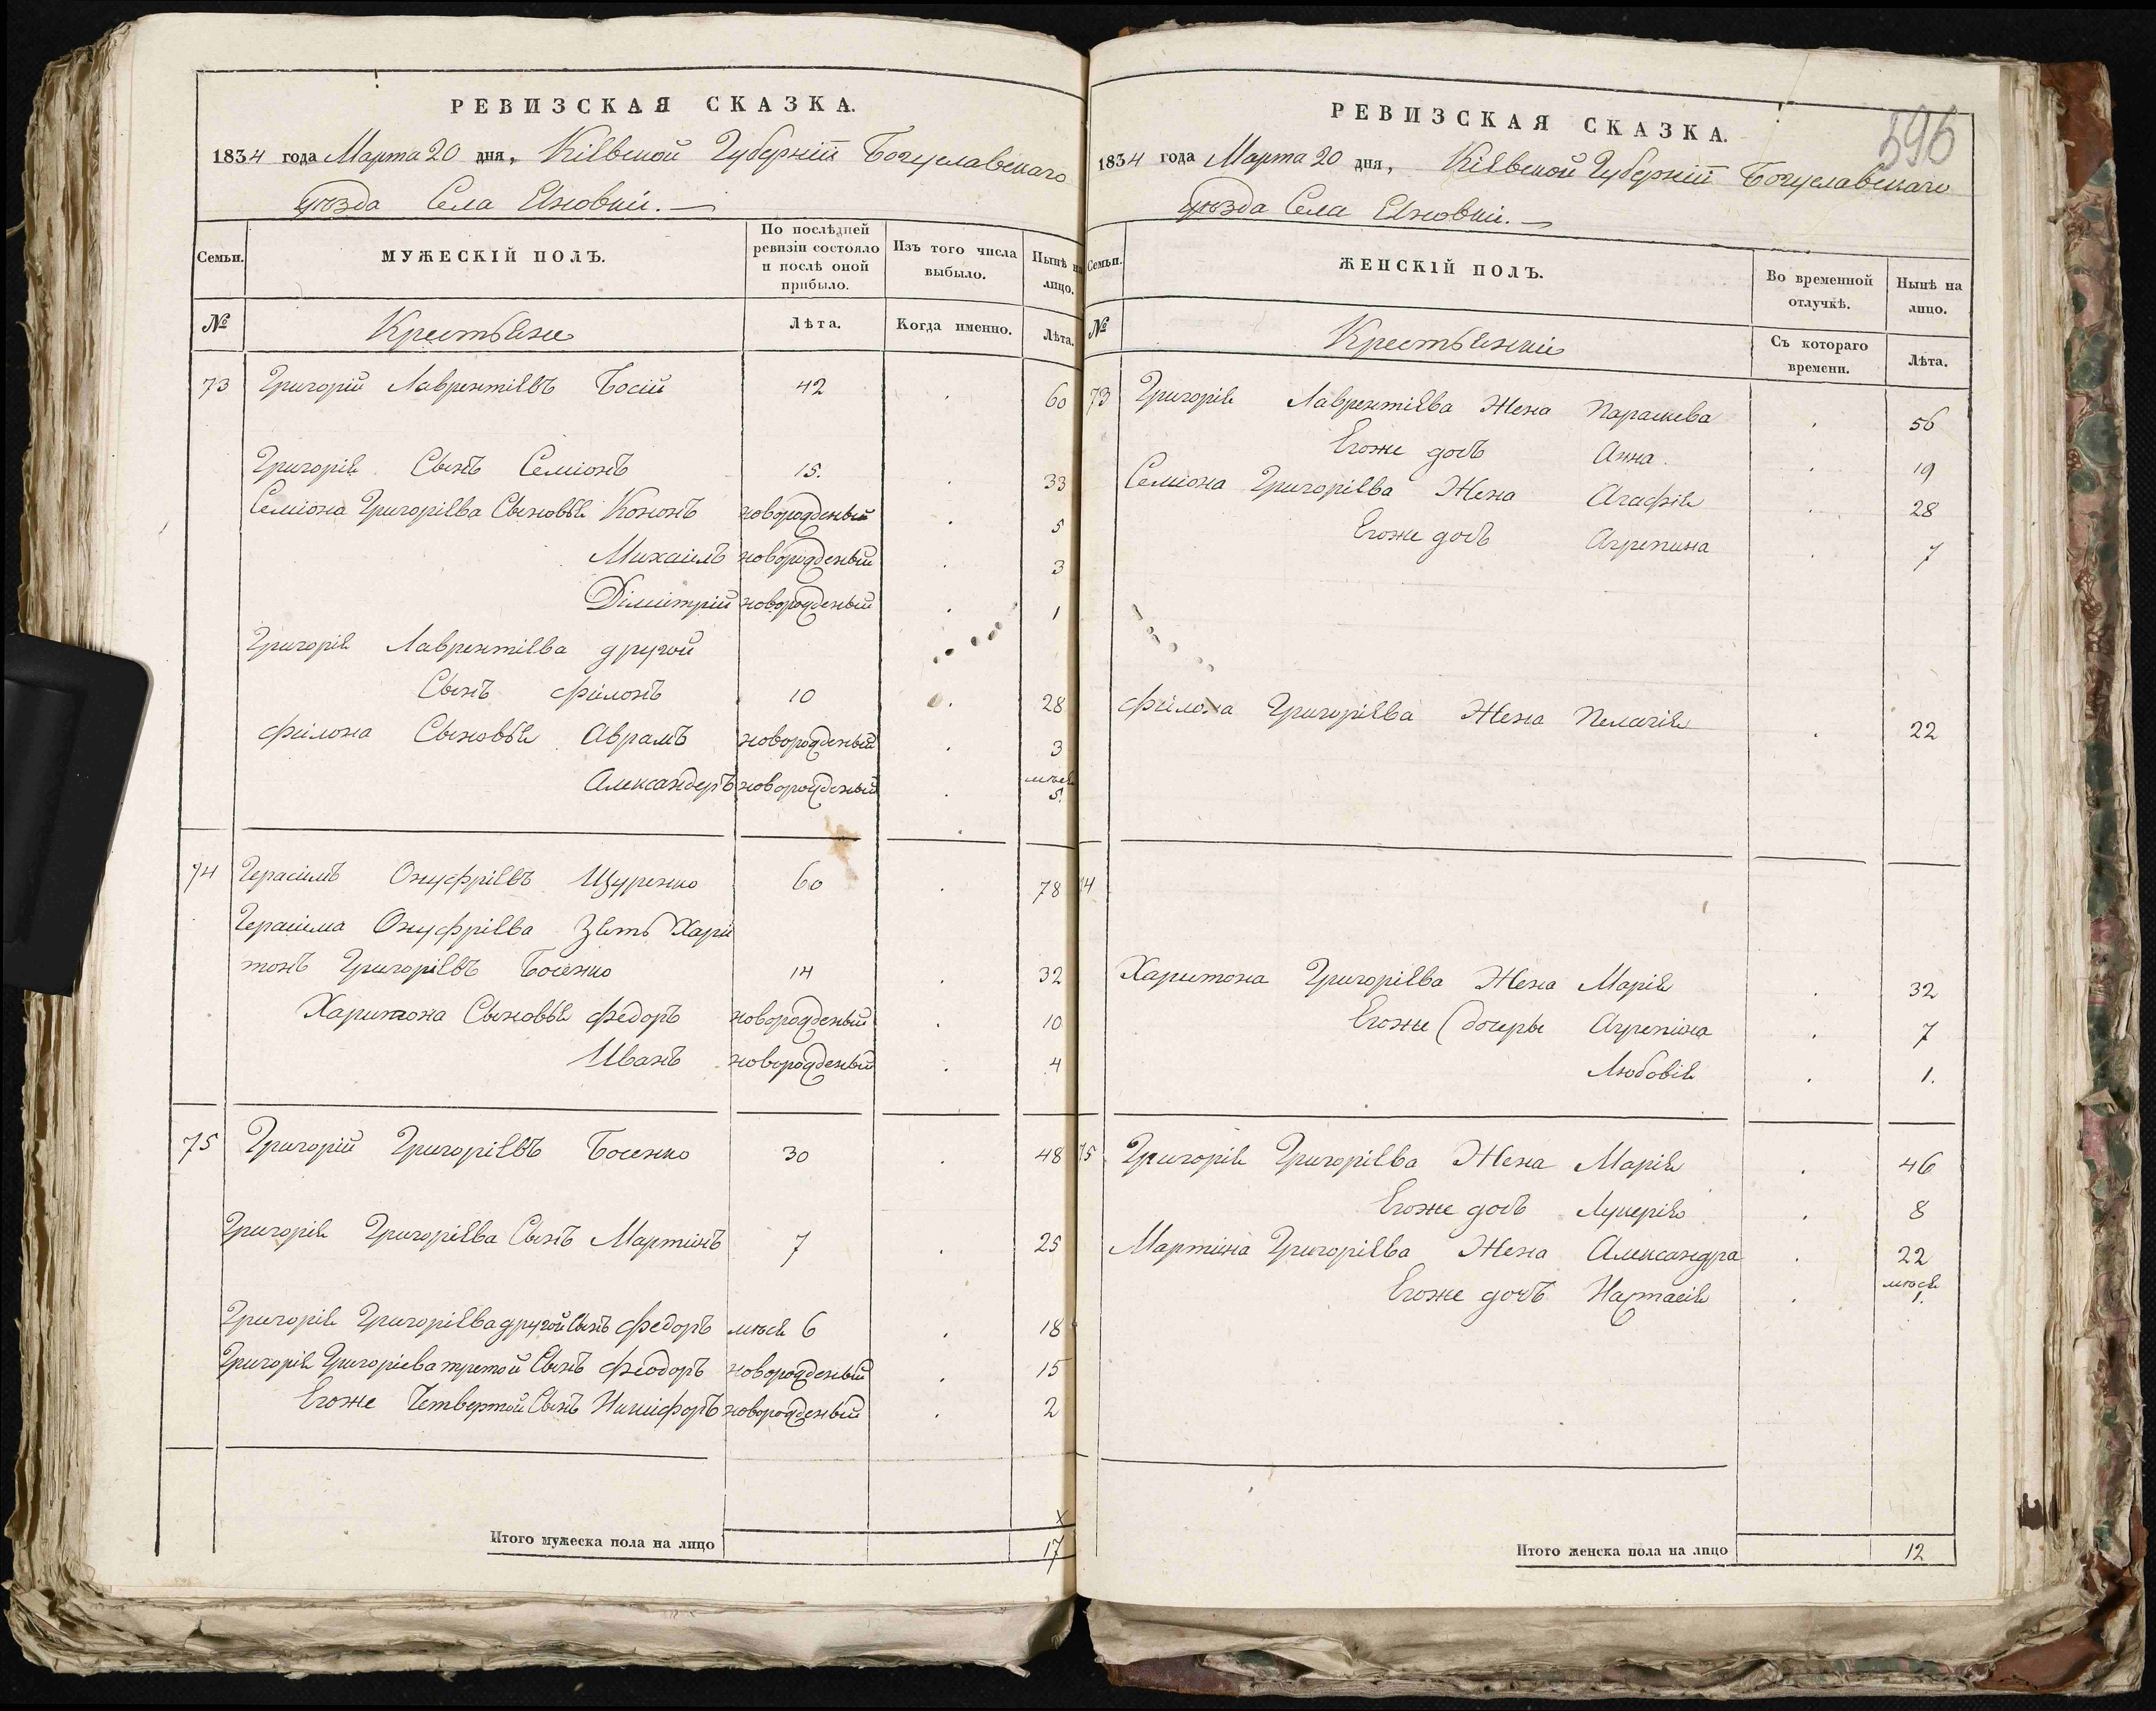 РЕВИЗСКАЯ СКАЗКА.
1834 года Марта 20 дня, Кіевской Губерніи Богуславскаго
уѣзда Села Яновки.
Семьи.
МУЖЕСКІЙ ПОЛЪ.
По послѣдней ревизіи состояло и послѣ оной прибыло.
Изъ того числа выбыло.
Нынѣ на лицо.
№
Крестьяне
Лѣта.
Когда именно.
Лѣта.
73 Григорій Лаврентіевъ Босій 42 60
Григорія Сынъ Семіонъ 15. 33
Семіона Григоріева Сыновья Кононъ новорожденый 5
Михаилъ новорожденый 3
Дімитрій новорожденый 1
Григорія Лаврентіева другой
Сынъ Филонъ 10 28
Филона Сыновья Аврамъ новорожденый 3
Александеръ новорожденый мѣся 5.
74 Герасимъ Онуфріевъ Щуренко 60 78
Герасима Онуфріева Зять Хари
тонъ Григоріевъ Босенко 14 32
Харитона Сыновья Федоръ новорожденый 10
Иванъ новорожденый 4
75 Григорій Григоріевъ Босенко 30 48
Григорія Григоріева Сынъ Мартинъ 7 25
Григорія Григоріева другой Сынъ Федоръ мѣся 6 18
Григорія Григоріева третой Сынъ Феодоръ новорожденый 15
Егоже Четвертой Сынъ Никифоръ новорожденый 2
Итого мужеска пола на лицо 17
596
РЕВИЗСКАЯ СКАЗКА.
1834 года Марта 20 дня, Кіевской Губерніи Богуславскаго
уѣзда Села Яновки.
Семьи.
ЖЕНСКІЙ ПОЛЪ.
Во временной отлучкѣ.
Нынѣ на лицо.
№
Крестьянки
Съ котораго времени.
Лѣта.
73 Григорія Лаврентіева Жена Параскева 56
Егоже дочь Анна. 19
Семіона Григоріева Жена Агафія 28
Егоже дочь Агрепина 7
Филона Григоріева Жена Пелагія 22
74
Харитона Григоріева Жена Марія 32
Егоже дочеры Агрепіна 7
Любовія 1.
75 Григорія Григоріева Жена Марія 46
Егоже дочь Лукерія 8
Мартина Григоріева Жена Александра 22
Егоже дочь Настасія мѣся 1.
Итого женска пола на лицо 12